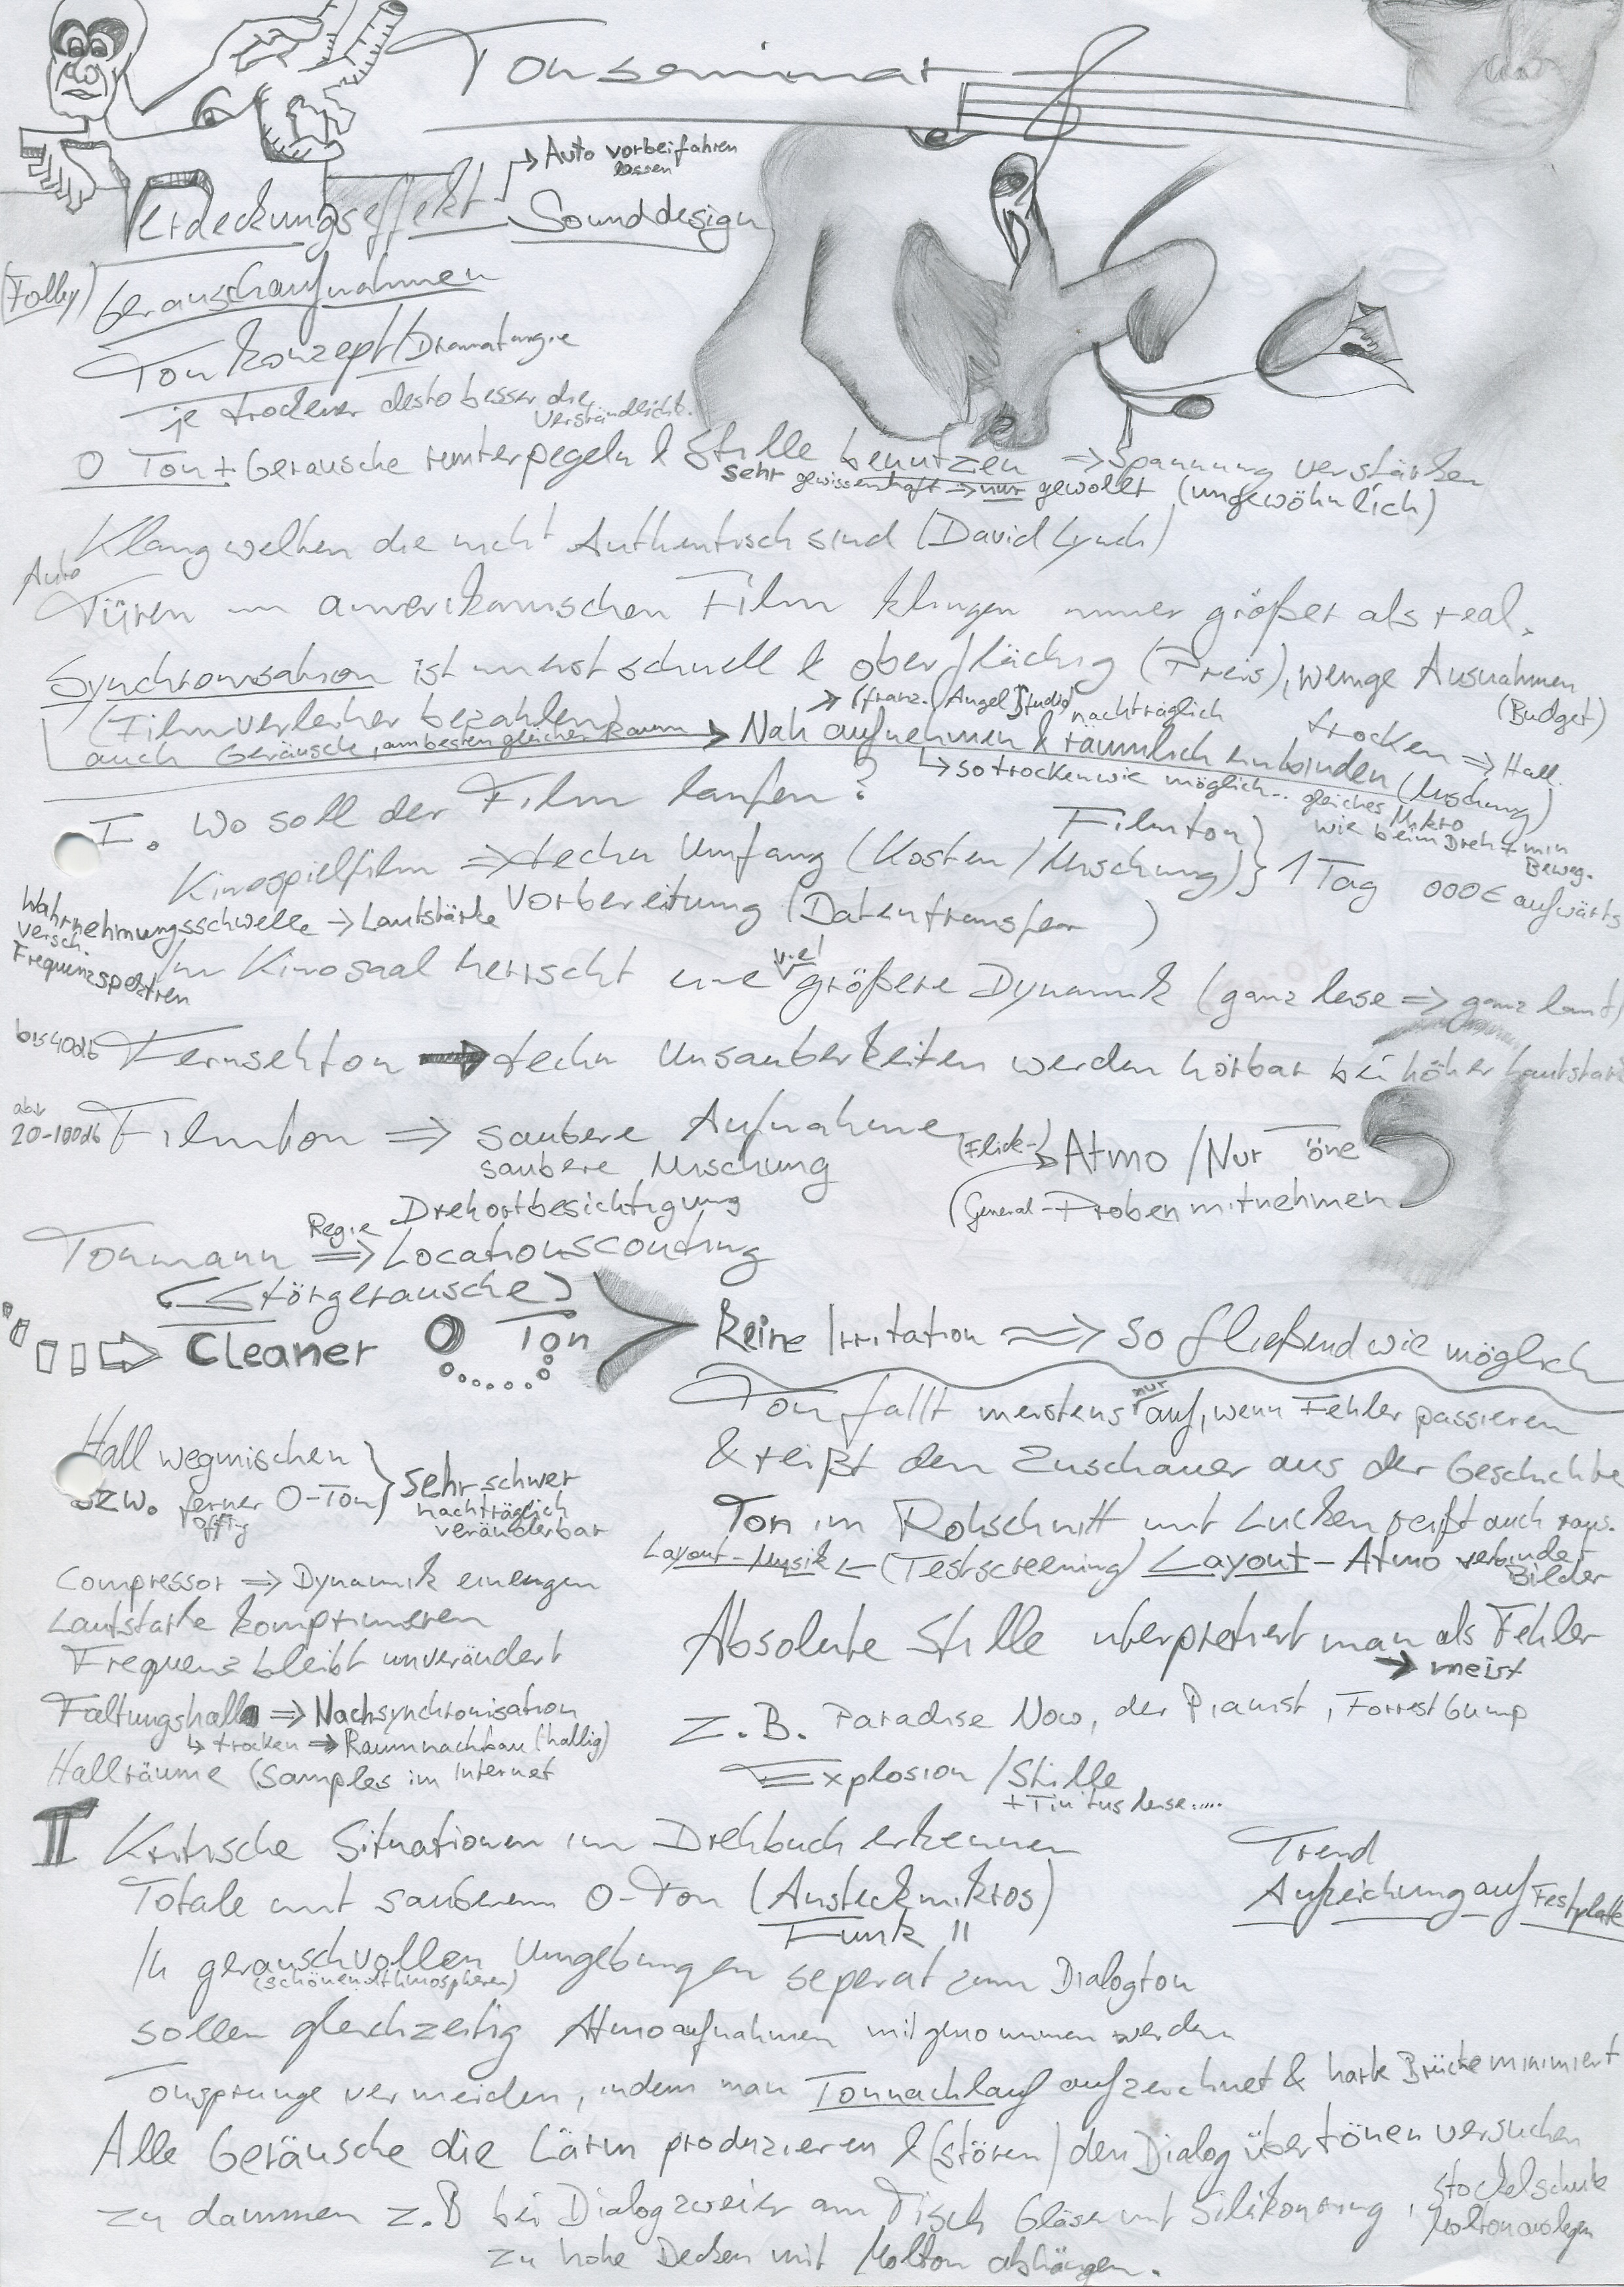 Tonseminar
Auto vorbeifahren
lassen
Verdeckungseffekt Sounddesign
(Folley) Geräuschaufnahmen
Tonkonzept/Dramaturgie
je trockener desto besser die
Verständlichk.
O Ton + Geräusche runterpegeln & Stille benutzen => Spannung verstärken
sehr gewissenhaft => nur gewollt (ungewöhnlich)
Klangwelten die nicht Authentisch sind (David Lynch)
Auto
Türen im amerikanischen Film klingen immer größer als real.
Synchronisation ist meist schnell & oberflächig (Preis), wenige Ausnahmen
(Budget)
(Filmverleiher bezahlen) → (franz. Angel Studio) nachträglich
auch Geräusche, am besten gleicher Raum → Nah aufnehmen & räumlich einbinden (Mischung)
trocken => Hall
↳ so trocken wie möglich.. gleiches Mikro
wie beim Dreh + min
Beweg.
I. Wo soll der Film laufen?
Kinospielfilm => techn Umfang (Kosten/Mischung) Filmton } 1 Tag 000€ aufwärts
Vorbereitung (Datentransfer )
Wahrnehmungsschwelle → Lautstärke
versch.
Frequenzspektren
Im Kinosaal herrscht eine viel größere Dynamik (ganz leise => ganz laut)
bis 40db Fernsehton → techn Unsauberkeiten werden hörbar bei höher Lautstär
20-100db Filmton => saubere Aufnahme
saubere Mischung
→ Atmo / Nur Töne
(General-Proben mitnehmen
Drehortbesichtigung
Regie
Tonmann => Locationscouting
(Störgeräusche)
Cleaner O Ton
Keine Irritation => so fließend wie möglich
Ton fällt meistens nur auf, wenn Fehler passieren
& reißt den Zuschauer aus der Geschichte
Ton im Rohschnitt mit Lücken reißt auch raus.
Layout-Musik ← (Testscreening) Layout-Atmo verbindet
Bilder
Absolute Stille interpretiert man als Fehler
→ meist
z.B. Paradise Now, der Pianist, Forrest Gump
Explosion / Stille
+ Tinitus leise.....
Hall wegmischen
bzw. ferner O-Ton } sehr schwer
offig
nachträglich
veränderbar
Compressor => Dynamik einengen
Lautstärke komprimieren
Frequenz bleibt unverändert
Faltungshall => Nachsynchronisation
↳ trocken => Raumnachbau (hallig)
Hallräume (Samples im Internet
II Kritische Situationen im Drehbuch erkennen
Totale mit sauberem O-Ton (Ansteckmikros)
Funk "
Trend
Aufzeichnung auf Festplatte
In geräuschvollen Umgebungen seperat zum Dialogton
(schönen Athmosphären)
sollen gleichzeitig Atmoaufnahmen mitgenommen werden
Tonsprünge vermeiden, indem man Tonnachlauf aufzeichnet & harte Brücke minimiert
Alle Geräusche die Lärm produzieren & (stören) den Dialog übertönen versuchen
zu dämmen z.B bei Dialog zweier am Tisch Gläser mit Silikonring, Stöckelschuhe
Molton auslegen
zu hohe Decken mit Molton abhängen.